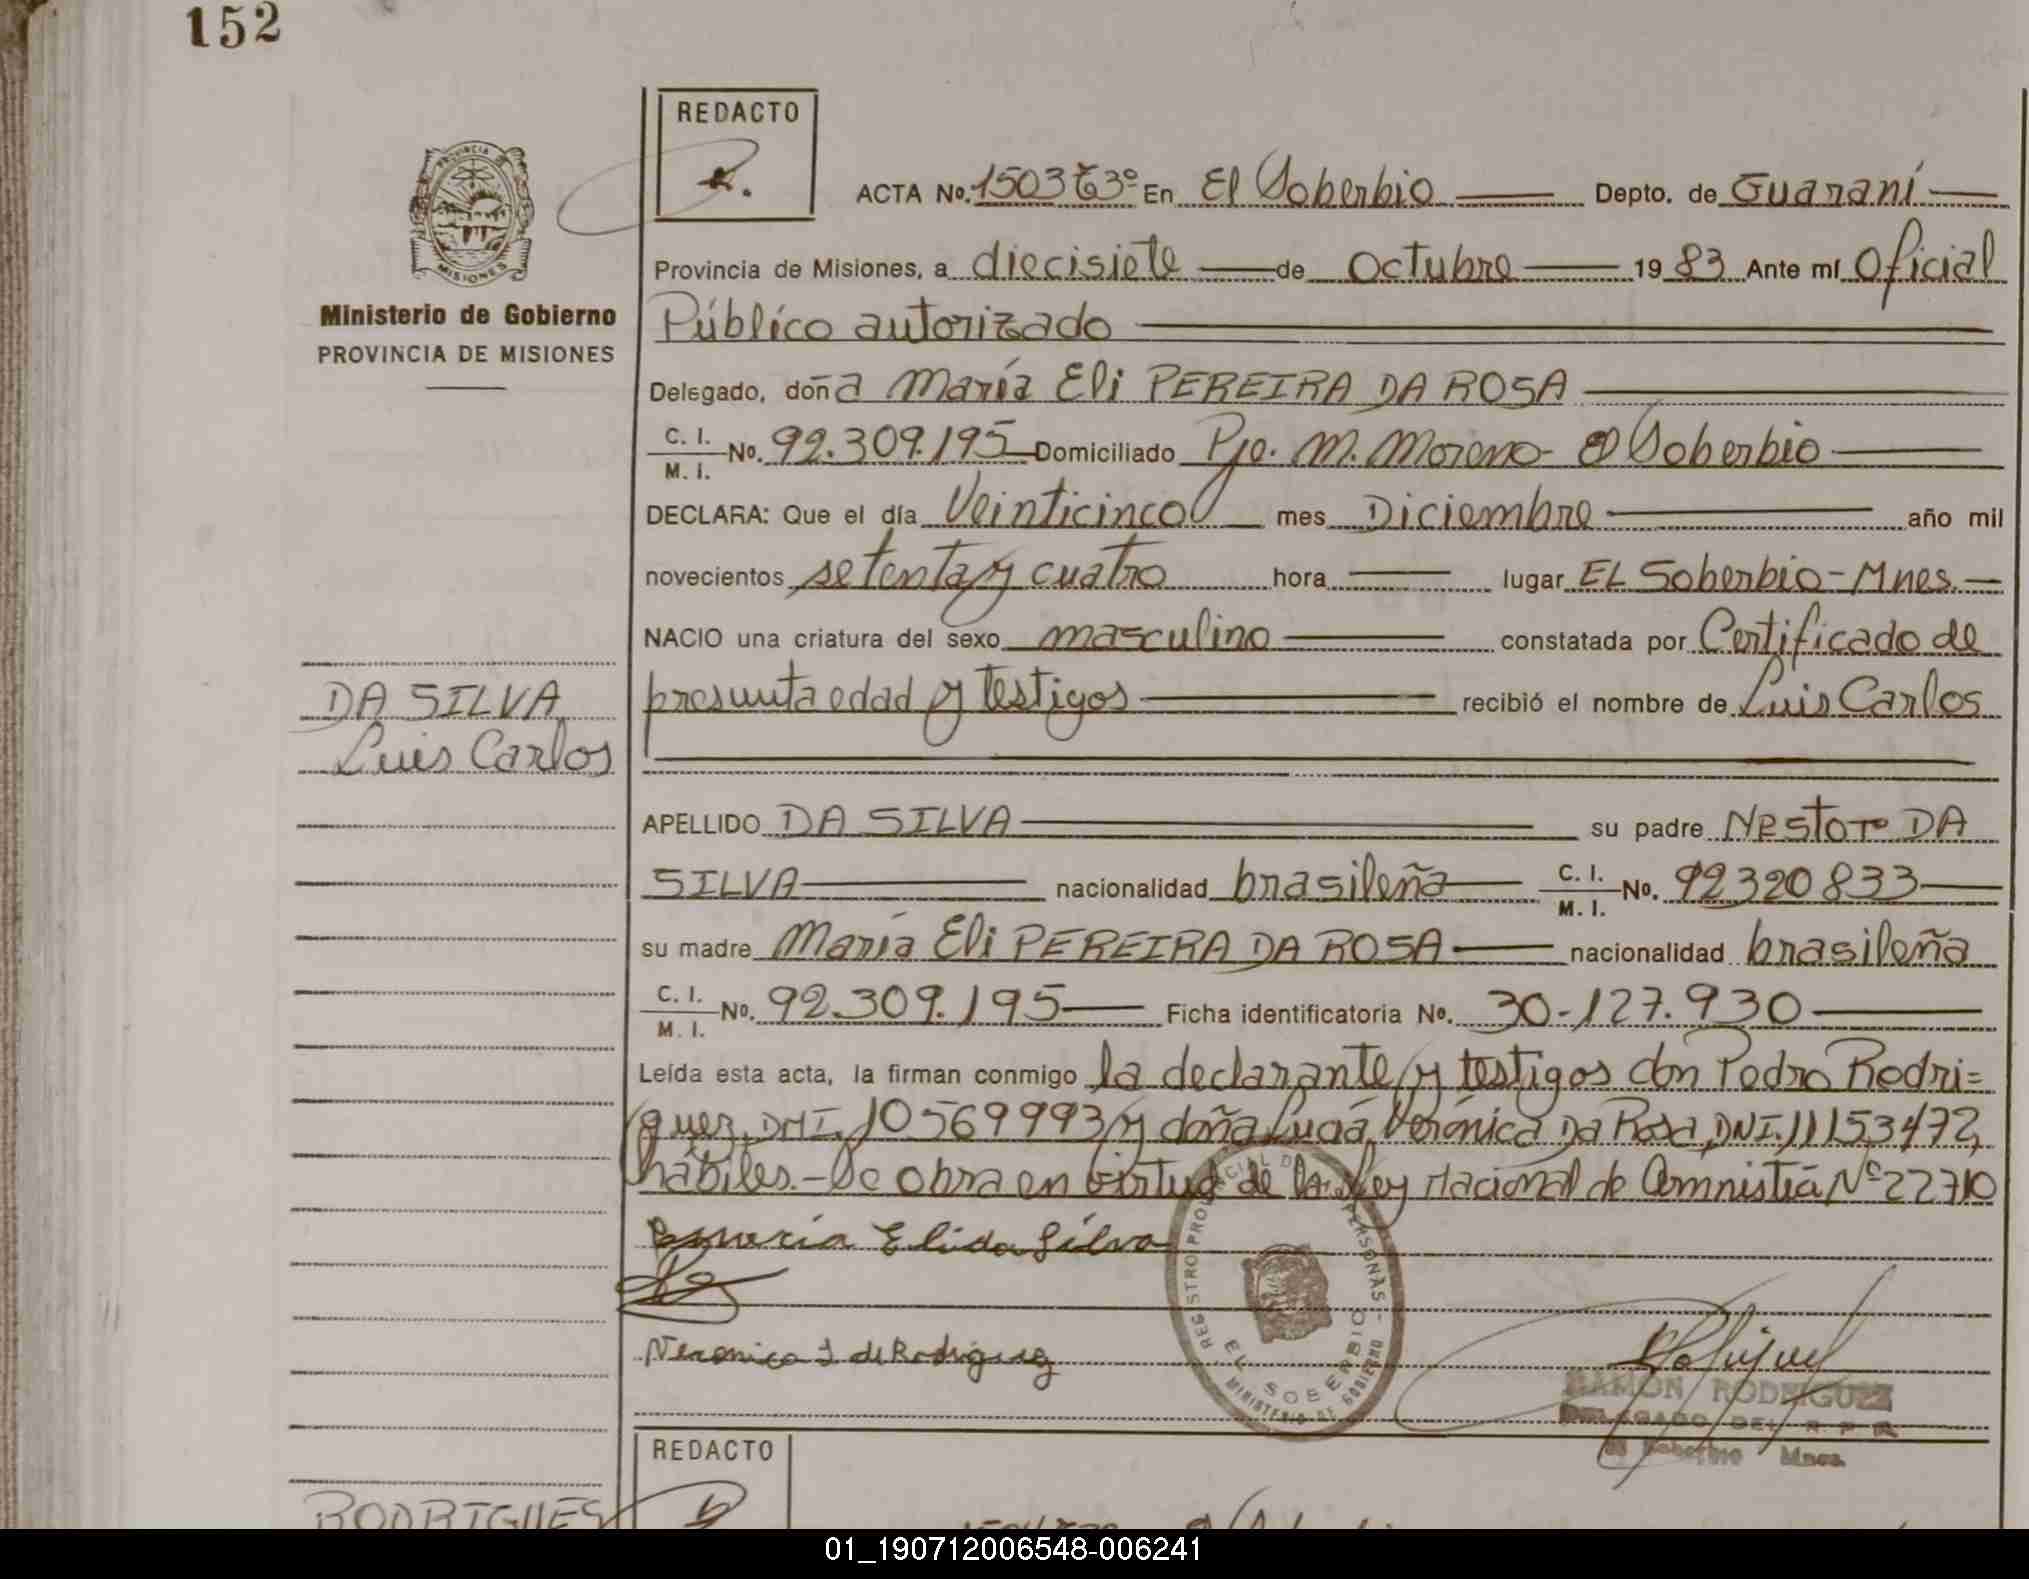 152
REDACTO
ACTA No. 1503 T3º En El Soberbio Depto. de Guaraní
Provincia de Misiones, a diecisiete de octubre 19 83 Ante mí Oficial
Ministerio de Gobierno
Público autorizado
PROVINCIA DE MISIONES
Delegado, doña María Eli PEREIRA DA ROSA
C. I.
M. I. No. 92.309.195 Domiciliado Pje. M. Moreno - El Soberbio
DECLARA: Que el día Veinticinco mes Diciembre año mil
novecientos setenta y cuatro hora lugar EL Soberbio - Mnes.
NACIO una criatura del sexo masculino constatada por Certificado de
DA SILVA
presunta edad y testigos recibió el nombre de Luis Carlos
Luis Carlos
APELLIDO DA SILVA su padre Nestor DA
SILVA nacionalidad brasileña C. I.
M. I. No. 92320833
su madre María Eli PEREIRA DA ROSA nacionalidad brasileña
C. I.
M. I. No. 92.309.195 Ficha identificatoria No. 30-127.930
Leída esta acta, la firman conmigo la declarante y testigos don Pedro Rodri=
guez, DNI. 10569993 y doña Lucía Verónica Da Rosa, DNI. 11153472,
hábiles.- Se obra en virtud de la Ley Nacional de Amnistía Nº 22710
María Elida Silva
Veronica L de Rodriguez
REGISTRO PROVINCIAL DE PERSONAS
EL SOBERBIO
MINISTERIO DE GOBIERNO
RAMON RODRIGUEZ
DELEGADO DEL R. P. P.
El Soberbio Mnes.
REDACTO
RODRIGUES
01_190712006548-006241